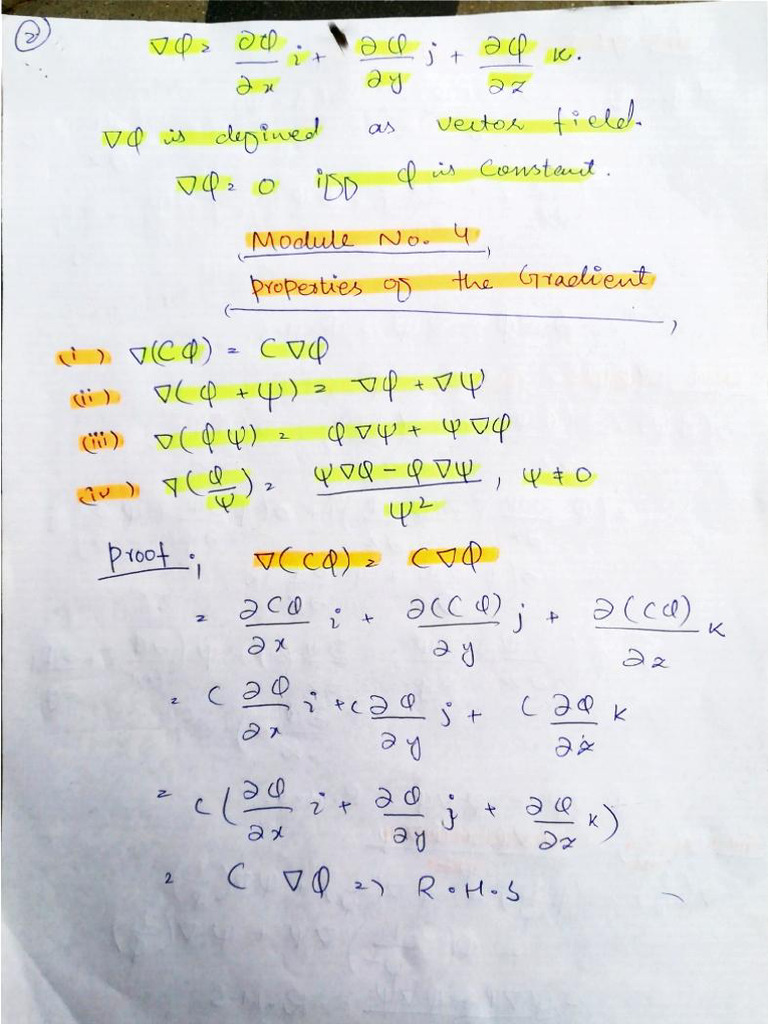 2
∇φ = ∂φ/∂x i + ∂φ/∂y j + ∂φ/∂z k.
∇φ is defined as vector field.
∇φ = 0 iff φ is constant.
Module No. 4
Properties of the Gradient
(i) ∇(Cφ) = C∇φ
(ii) ∇(φ + ψ) = ∇φ + ∇ψ
(iii) ∇(φψ) = φ∇ψ + ψ∇φ
(iv) ∇(φ/ψ) = (ψ∇φ - φ∇ψ)/ψ², ψ ≠ 0
Proof; ∇(Cφ) = C∇φ
= ∂Cφ/∂x i + ∂(Cφ)/∂y j + ∂(Cφ)/∂z k
= C ∂φ/∂x i + C ∂φ/∂y j + C ∂φ/∂z k
= C(∂φ/∂x i + ∂φ/∂y j + ∂φ/∂z k)
= C ∇φ => R.H.S